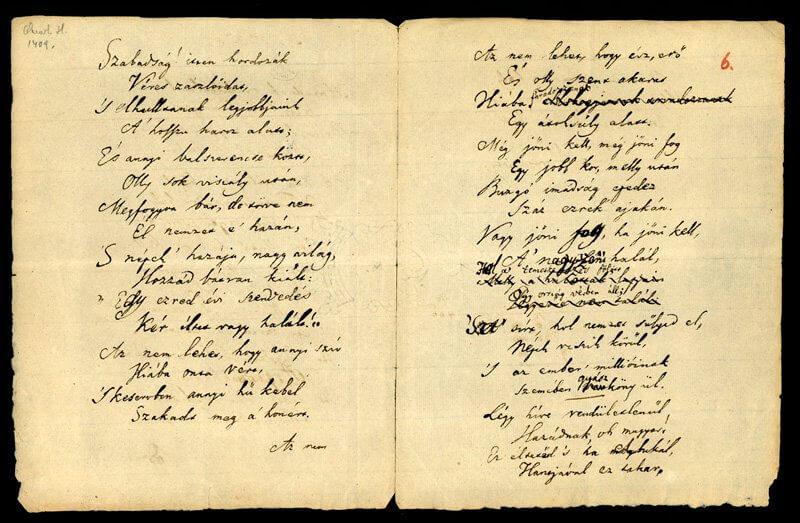 Quart. H.
1409.
Szabadság' itten hordozák
Véres zászlóidat,
'S elhulltanak legjobbjaink
A' hosszu harcz alatt;
És annyi balszerencse közt,
Olly sok viszály után,
Megfogyva bár, de törve nem
Él nemzet e' hazán,
'S népek' hazája, nagy világ,
Hozzád bátran kiált:
"Egy ezred évi szenvedés
Kér éltet vagy halált!"
Az nem lehet, hogy annyi szív
Hiába onta vért,
'S keservben annyi hű kebel
Szakadt meg a' honért.
Az nem
6.
Az nem lehet, hogy ész, erő
És olly szent akarat
Hiába
Egy átoksúly alatt.
Még jőni kell, még jőni fog
Egy jobb kor, melly után
Buzgó imádság epedez
Száz ezrek ajakán.
Vagy jőni fog, ha jőni kell,
A' nagyszerű halál,
Hol a' temetkezés fölött
Egy ország vérben áll.
'S a' sirt, hol nemzet sűlyed el,
Népek veszik körűl,
'S az ember millióinak
Szemében gyász
könyű űl.
Légy híve rendületlenűl
Hazádnak, oh magyar;
Ez éltetőd 's ha elbukál,
Hantjával ez takar,